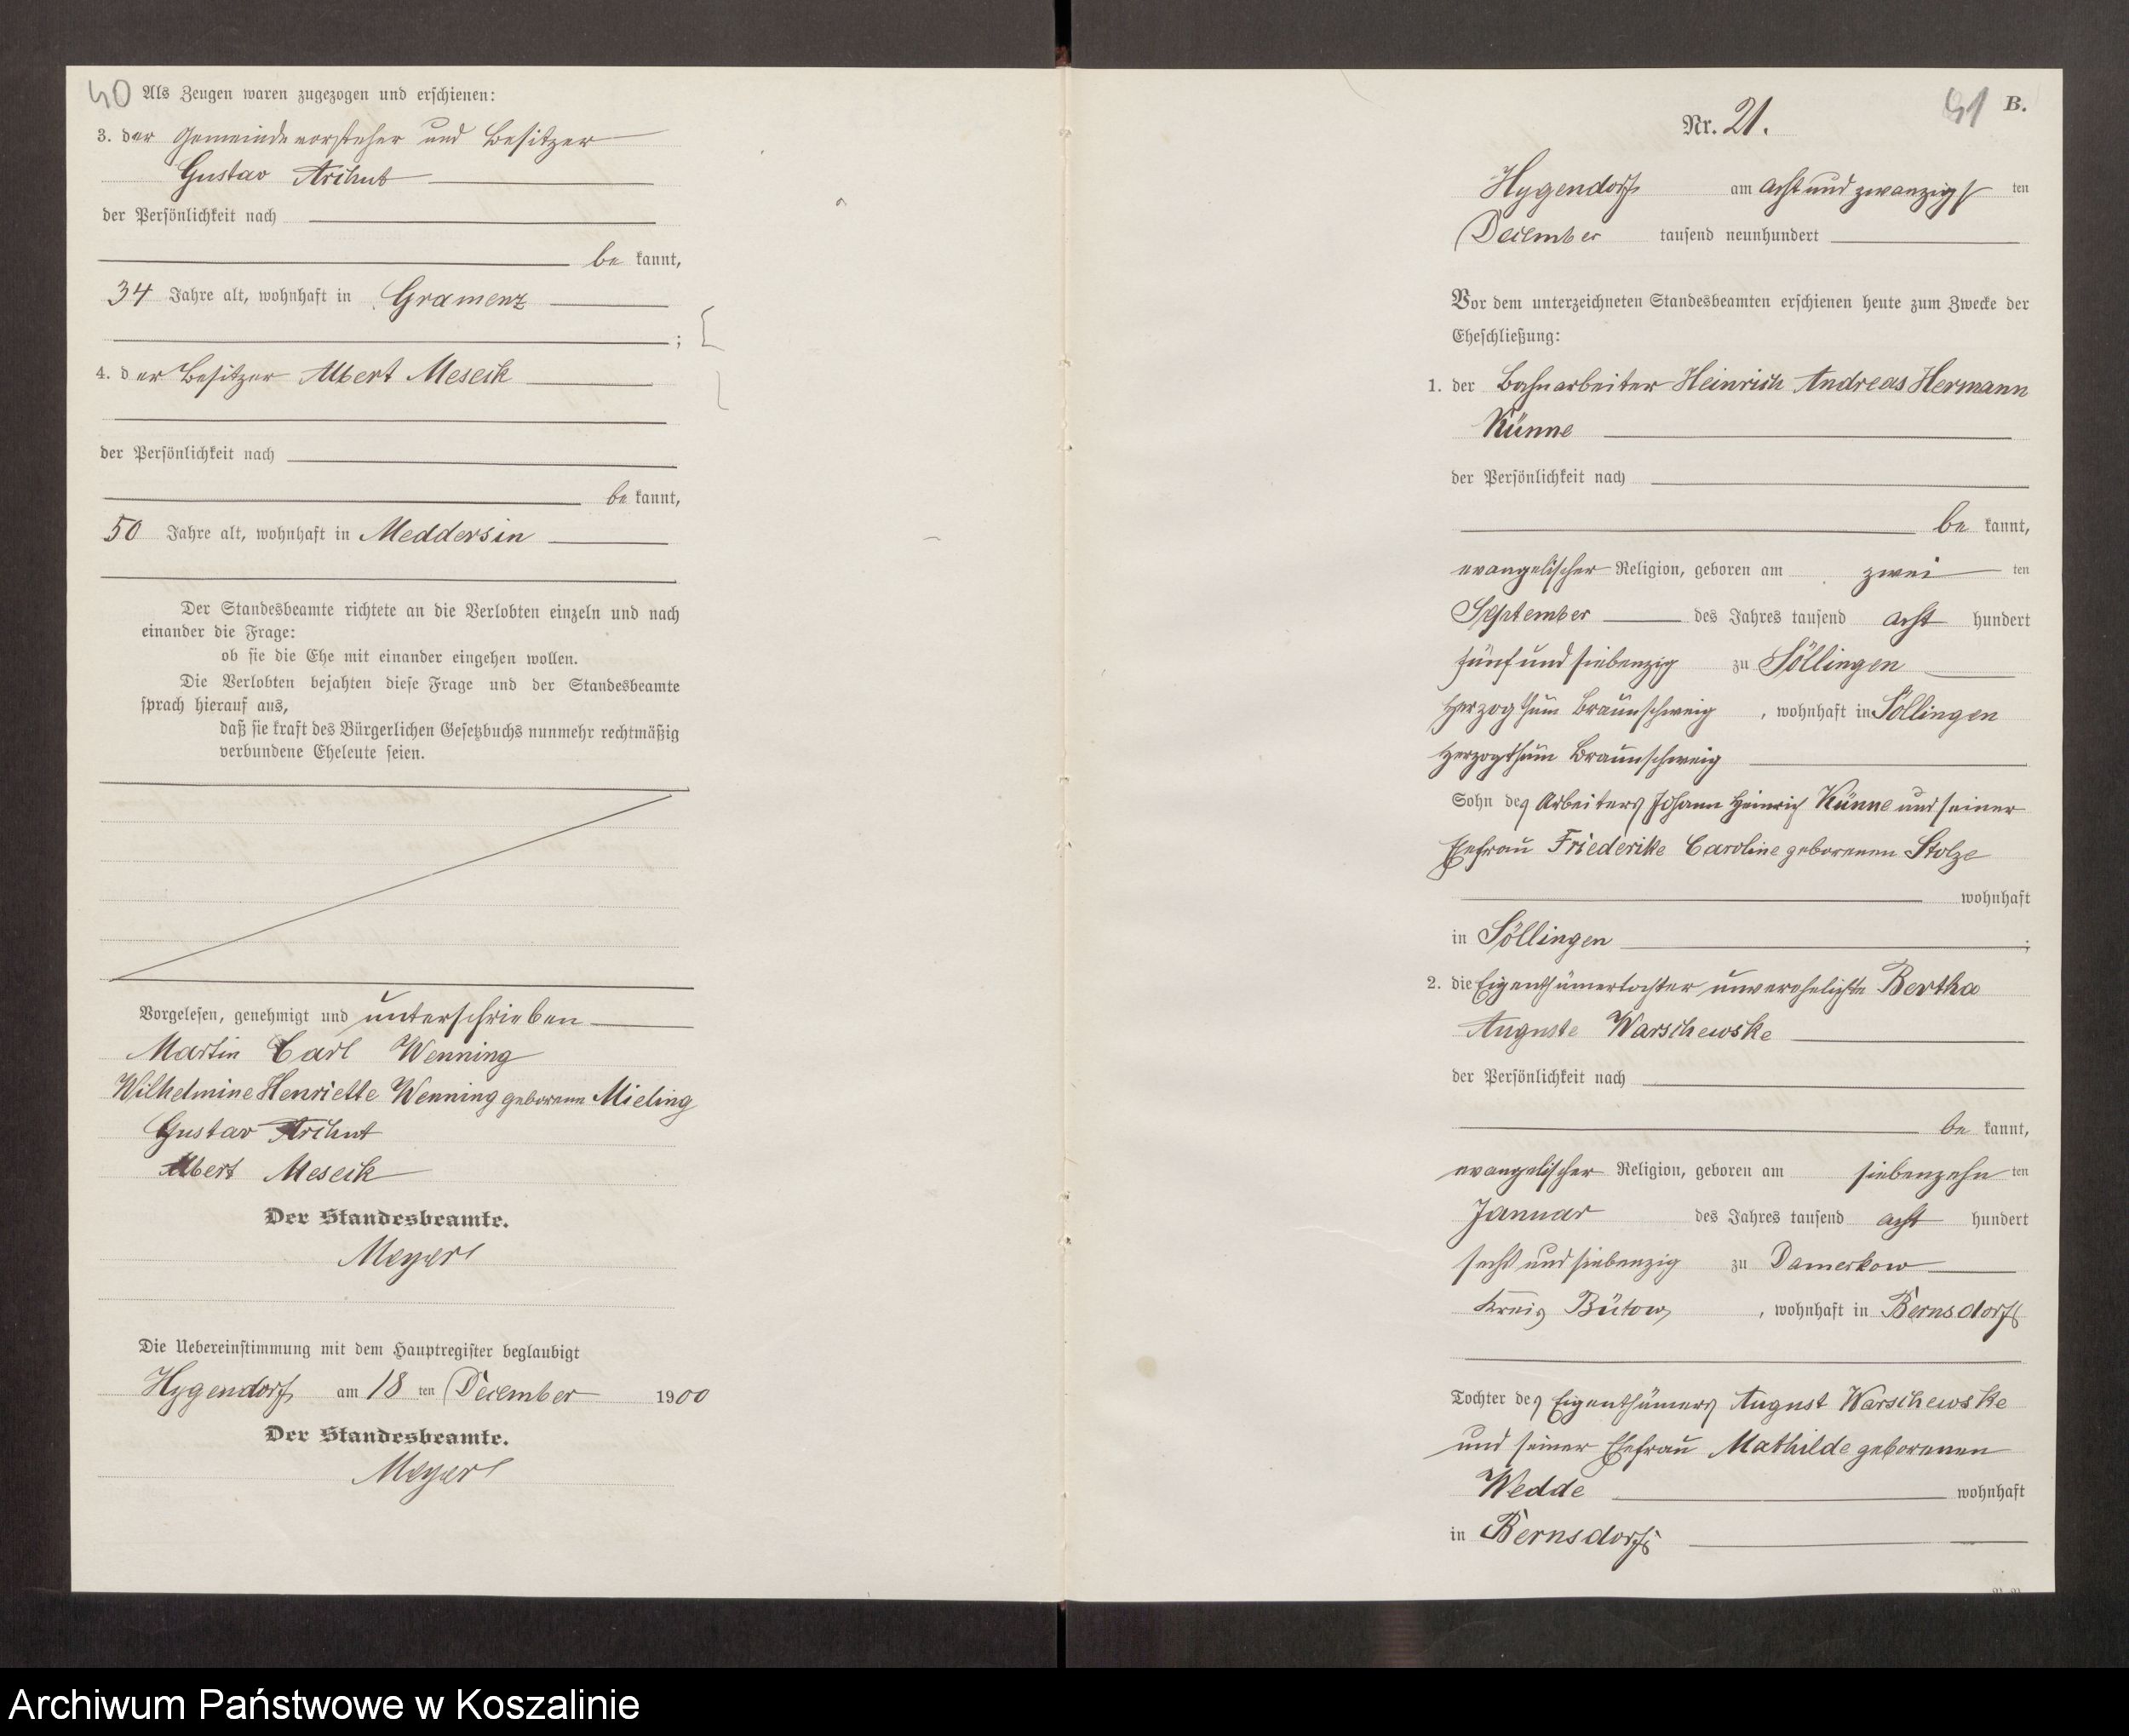 40
Als Zeugen waren zugezogen und erschienen:
3. der Gemeindevorsteher und Besitzer
Gustav Archut
der Persönlichkeit nach
be kannt,
34 Jahre alt, wohnhaft in Gramenz
;
4. der Besitzer Albert Meseck
der Persönlichkeit nach
be kannt,
50 Jahre alt, wohnhaft in Meddersin
Der Standesbeamte richtete an die Verlobten einzeln und nach
einander die Frage:
ob sie die Ehe mit einander eingehen wollen.
Die Verlobten bejahten diese Frage und der Standesbeamte
sprach hierauf aus,
daß sie kraft des Bürgerlichen Gesetzbuchs nunmehr rechtmäßig
verbundene Eheleute seien.
Vorgelesen, genehmigt und unterschrieben
Martin Carl Wenning
Wilhelmine Henriette Wenning geborene Mieling
Gustav Archut
Albert Meseck
Der Standesbeamte.
Die Uebereinstimmung mit dem Hauptregister beglaubigt
Hygendorf am 18 ten December 1900
Der Standesbeamte.
41 B.
Nr. 21.
Hygendorf am acht und zwanzigsten
December tausend neunhundert
Vor dem unterzeichneten Standesbeamten erschienen heute zum Zwecke der
Eheschließung:
1. der Bahnarbeiter Heinrich Andreas Hermann
Künne
der Persönlichkeit nach
be kannt,
evangelischer Religion, geboren am zwei ten
September des Jahres tausend acht hundert
fünf und siebenzig zu Söllingen
Herzogthum Braunschweig, wohnhaft in Söllingen
Herzogthum Braunschweig
Sohn des Arbeiters Johann Heinrich Künne und seiner
Ehefrau Friederike Caroline geborenen Stolze
wohnhaft
in Söllingen ;
2. die Eigenthümertochter unverehelichte Bertha
Auguste Warschewske
der Persönlichkeit nach
be kannt,
evangelischer Religion, geboren am siebenzehn ten
Januar des Jahres tausend acht hundert
sechs und siebenzig zu Damerkow
Kreis Bütow, wohnhaft in Bernsdorf
Tochter des Eigenthümers August Warschewske
und seiner Ehefrau Mathilde geborenen
Wedde wohnhaft
in Bernsdorf
Archiwum Państwowe w Koszalinie